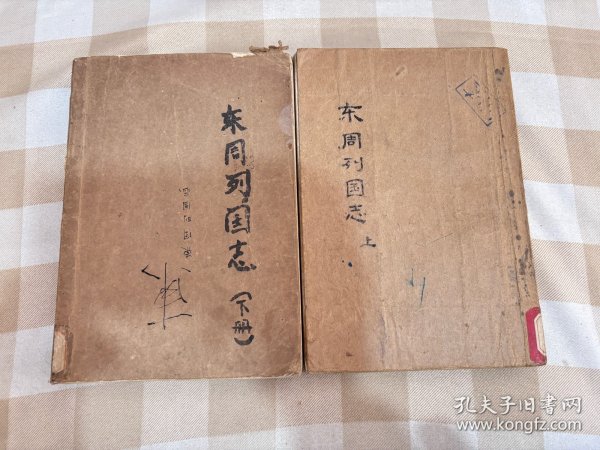 东周列国志
(下册)
东周列国志
上
孔夫子旧书网
www.kongfz.com